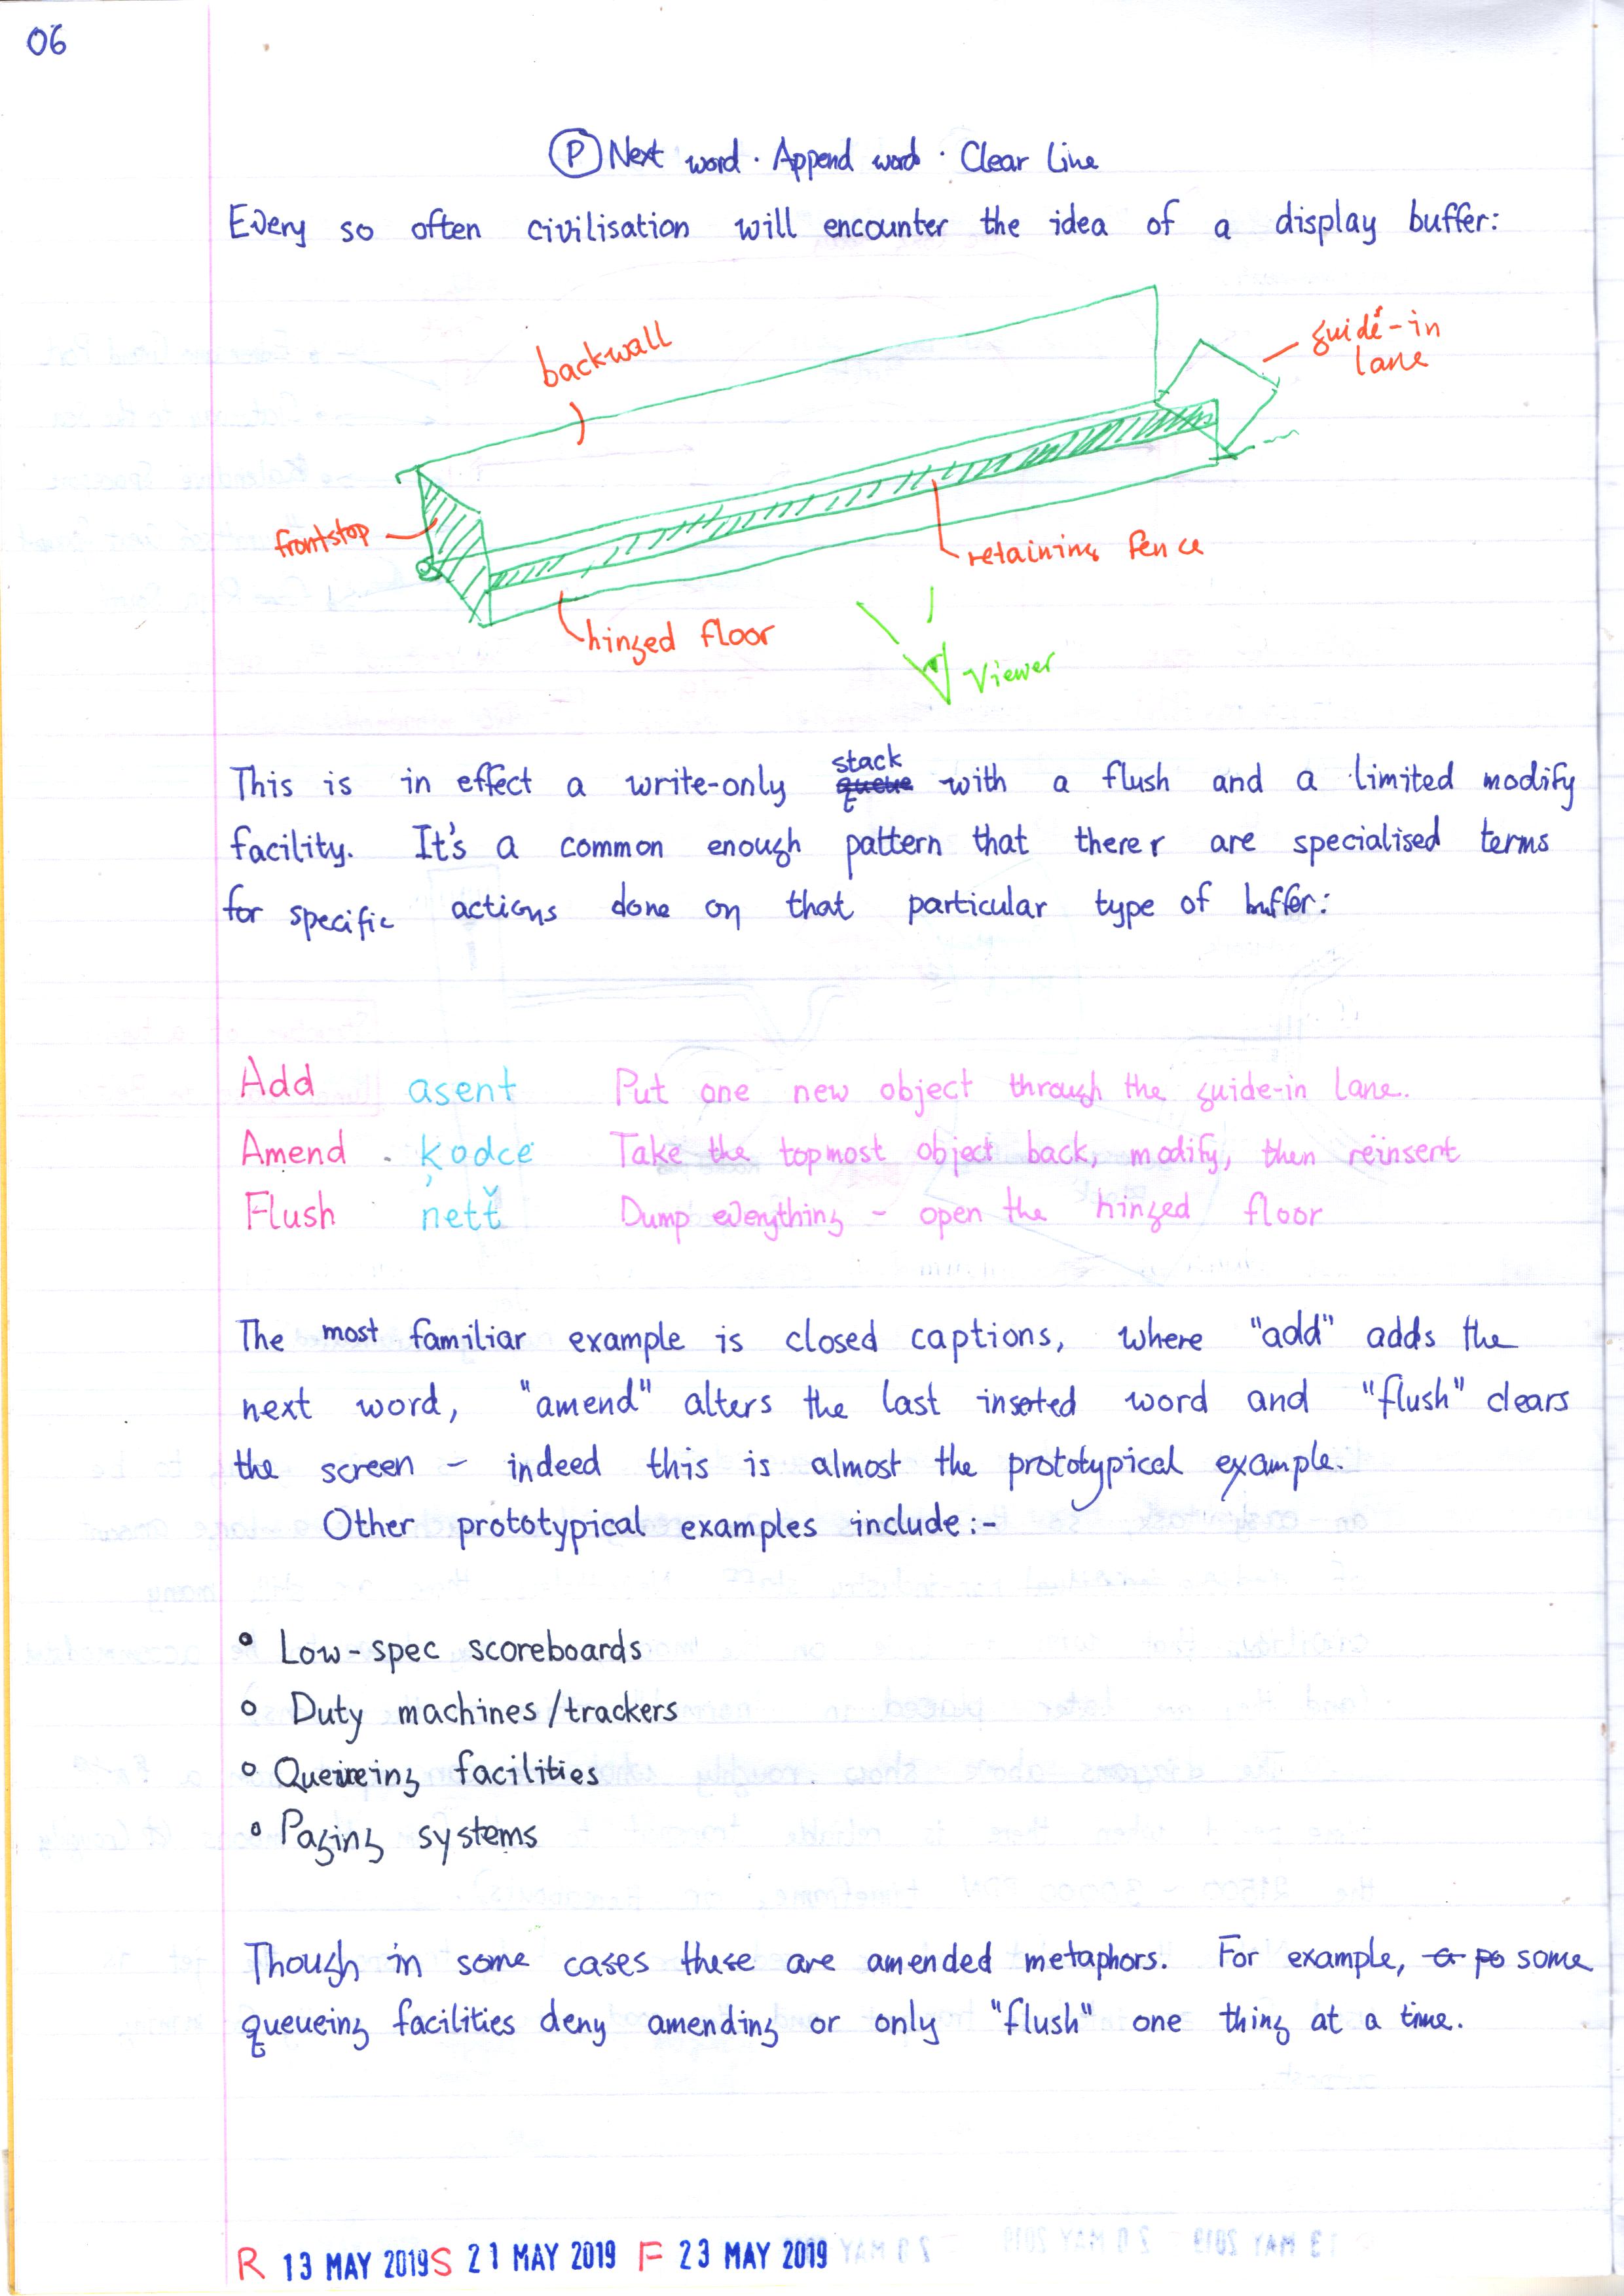 06
Ⓟ Next word · Append word · Clear Line
Every so often civilisation will encounter the idea of a display buffer:
backwall
guide-in
lane
frontstop
retaining fence
hinged floor
Viewer
stack
This is in effect a write-only queue with a flush and a limited modify
facility. It's a common enough pattern that therer are specialised terms
for specific actions done on that particular type of buffer:
Add asent Put one new object through the guide-in lane.
Amend ķodce Take the topmost object back, modify, then reinsert
Flush nettť Dump everything - open the hinged floor
The most familiar example is closed captions, where "add" adds the
next word, "amend" alters the last inserted word and "flush" clears
the screen - indeed this is almost the prototypical example.
Other prototypical examples include:-
° Low-spec scoreboards
° Duty machines/trackers
° Queueing facilities
° Paging systems
Though in some cases these are amended metaphors. For example, a po some
queueing facilities deny amending or only "flush" one thing at a time.
R 13 MAY 2019 S 21 MAY 2019 F 23 MAY 2019